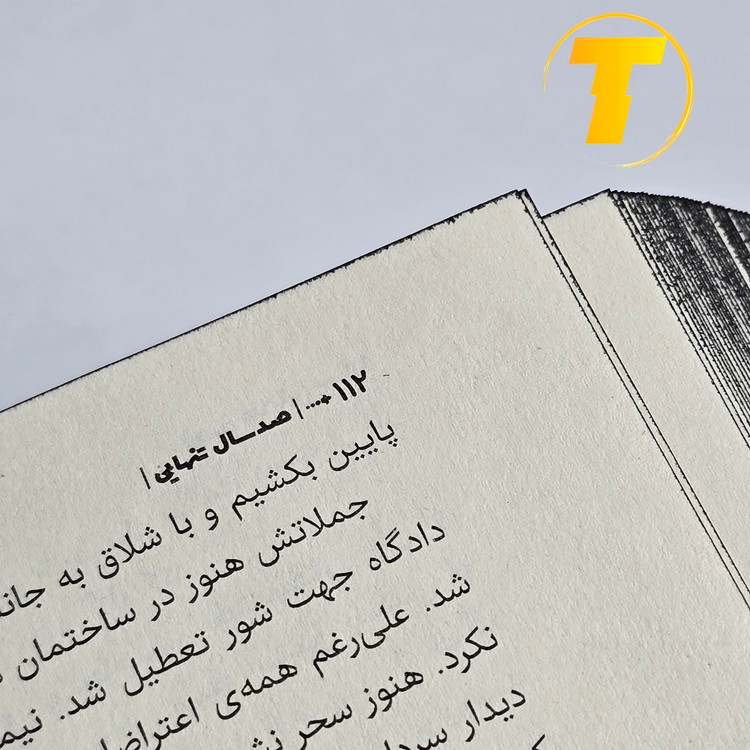 T
۱۱۲ ...• | صد سال تنهایی |
پایین بکشیم و با شلاق به
جملاتش هنوز در ساختمان
دادگاه جهت شور تعطیل شد.
شد. علی‌رغم همه‌ی
نکرد. هنوز سحر
دیدار